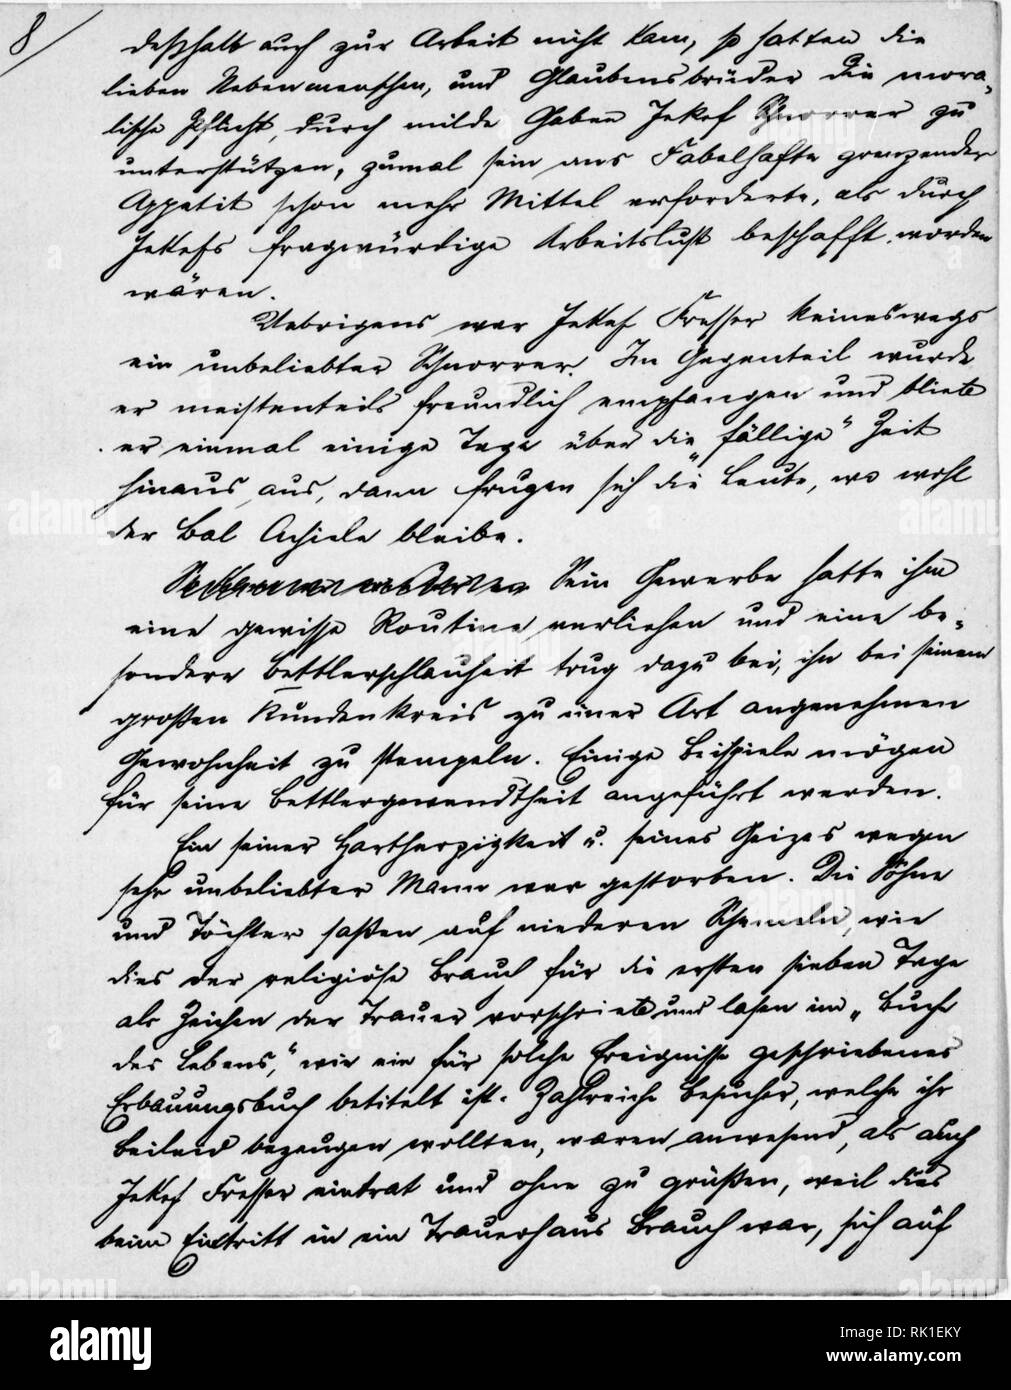 8
deßhalb auch zur Arbeit nicht kam, so hatten die
lieben Nebenmenschen, und Glaubensbrüder die mora-
lische Pflicht, durch milde Gaben Jekef Schnorrer zu
unterstützen, zumal sein ans Fabelhafte grenzender
Appetit schon mehr Mittel erforderte, als durch
Jekefs fragwürdige Arbeitslust beschafft worden
wären.
Uebrigens war Jekef Fresser keineswegs
ein unbeliebter Schnorrer. Im Gegenteil wurde
er meistenteils freundlich empfangen und blieb
er einmal einige Tage über die „fällige“ Zeit
hinaus aus, dann frugen sich die Leute, wo wohl
der Bal Achiele bleibe.
Sein Gewerbe hatte ihm
eine gewisse Routine verliehen und eine be-
sondere Bettlerschlauheit trug dazu bei, ihn bei seinem
großen Kundenkreis zu einer Art angenehmen
Gewohnheit zu stempeln. Einige Beispiele mögen
für seine Bettlergewandtheit angeführt werden.
Ein seiner Hartherzigkeit u. seines Geizes wegen
sehr unbeliebter Mann war gestorben. Die Söhne
und Töchter saßen auf niederen Schemeln, wie
dies der religiöse Brauch für die ersten sieben Tage
als Zeichen der Trauer vorschrieb und lasen im „Buche
des Lebens,“ wie ein für solche Ereignisse geschriebenes
Erbauungsbuch betitelt ist. Zahlreiche Besucher, welche ihr
Beileid bezeugen wollten, waren anwesend, als auch
Jekef Fresser eintrat und ohne zu grüßen, weil dies
beim Eintritt in ein Trauerhaus Brauch war, sich auf
alamy
Image ID: RK1EKY
www.alamy.com